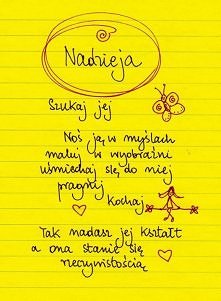 Nadzieja
Szukaj jej
Noś ją w myślach
maluj w wyobraźni
uśmiechaj się do niej
pragnij
Kochaj
Tak nadasz jej kształt
a ona stanie się
rzeczywistością